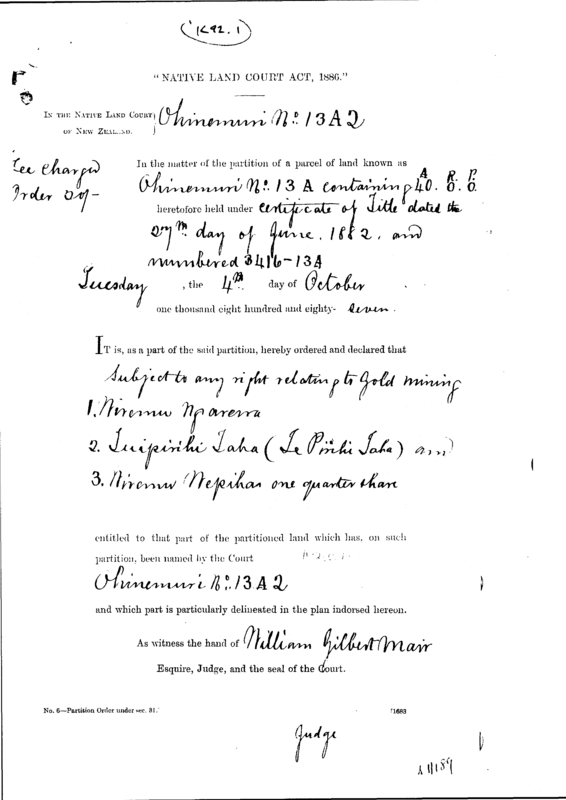 (K92.1)
"NATIVE LAND COURT ACT, 1886."
IN THE NATIVE LAND COURT
OF NEW ZEALAND.
Ohinemuri No. 13 A 2
Fee Charged
Order
In the matter of the partition of a parcel of land known as
A. R. P.
Ohinemuri No. 13 A containing 40. 0. 0.
heretofore held under Certificate of Title dated the
27th day of June. 1882. and
numbered 3416-13A
Tuesday , the 4th day of October
one thousand eight hundred and eighty- seven.
IT is, as a part of the said partition, hereby ordered and declared that
Subject to any right relating to Gold mining
1. Niremu
2. Tuipirihi Taha (Te Pirihi Taha) and
3. Niremu one quarter share
entitled to that part of the partitioned land which has, on such
partition, been named by the Court
Ohinemuri No. 13 A 2
and which part is particularly delineated in the plan indorsed hereon.
As witness the hand of William Gilbert Mair
Esquire, Judge, and the seal of the Court.
No. 6—Partition Order under sec. 31.
1683
Judge